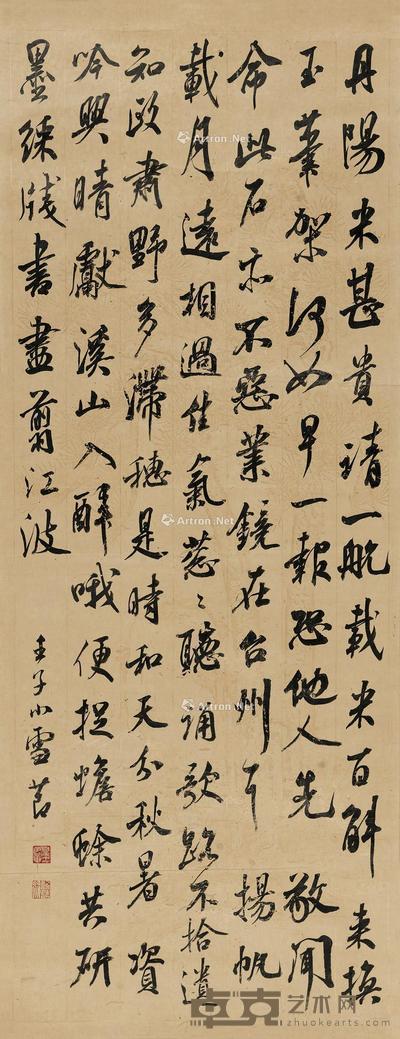 丹陽米甚貴請一航載米百斛來換
玉筆架何如早一報恐他人先敬聞
命此石亦不惡業鏡在台州下揚帆
載月遠相過佳氣葱〻聽誦歌路不拾遺
知政肅野多滯穗是時和天分秋暑資
吟興晴獻溪山入醉哦便捉蟾蜍共研
墨練牋書盡剪江波
壬子小雪
Artron.Net
Artron.Net
Artron.Net
Artron.Net
卓克艺术网
zhuokearts.com